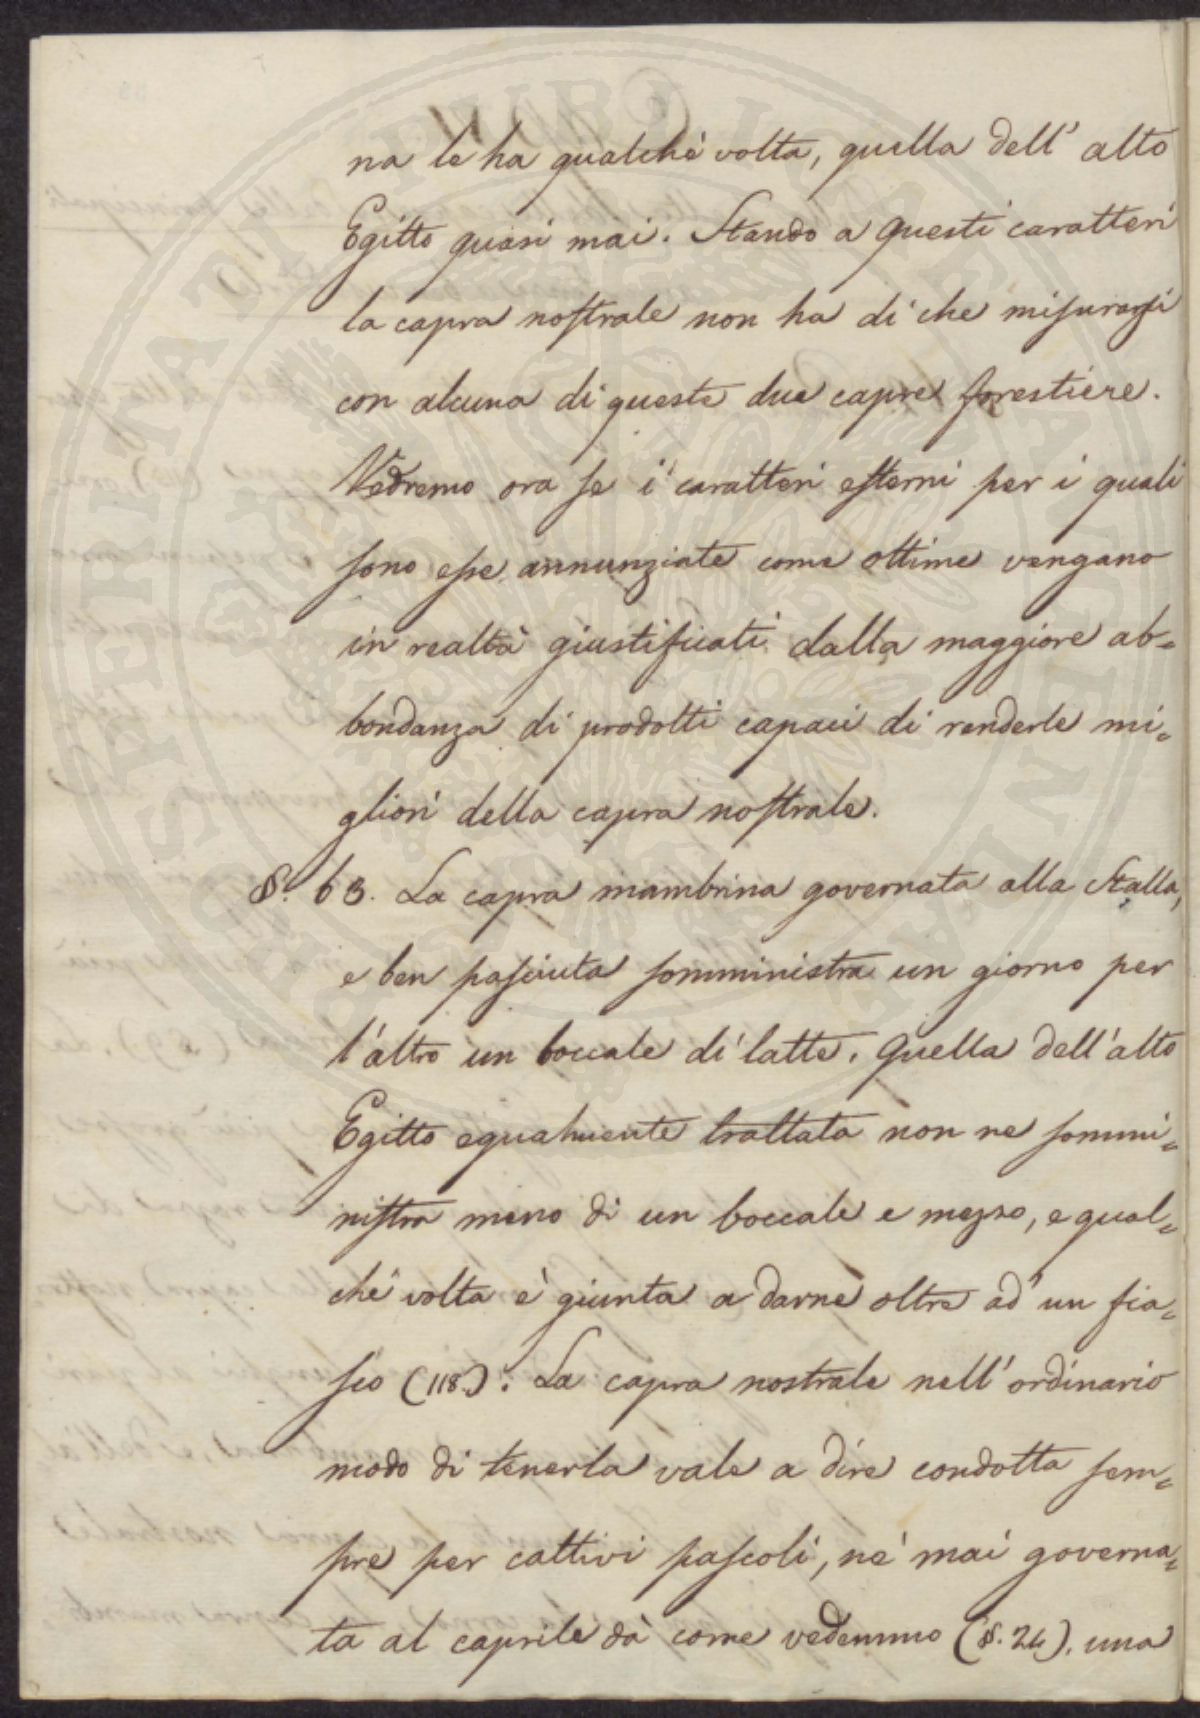 na le ha qualchè volta, quella dell' alto
Egitto quasi mai. Stando a questi caratteri
la capra noſtrale non ha di che miſurarſi
con alcuna di queste due capre forestiere.
Vedremo ora ſe i caratteri eſterni per i quali
ſono eſse annunziate come ottime vengano
in realtà giustificati dalla maggiore ab=
bondanza di prodotti capaci di renderle mi=
gliori della capra noſtrale.
§. 63. La capra mambrina governata alla Stalla,
e ben paſciuta ſomministra un giorno per
l'altro un boccale di latte. Quella dell'alto
Egitto egualmente trattata non ne ſommi=
niſtra meno di un boccale e mezzo, e qual=
chè volta è giunta a darne oltre ad un fia=
ſco (118.). La capra nostrale nell'ordinario
modo di tenerla vale a dire condotta ſem=
pre per cattivi paſcoli, nè mai governa=
ta al caprile dà come vedemmo (§. 24). una
PROSPERITATI PUBLICAE AUGENDAE